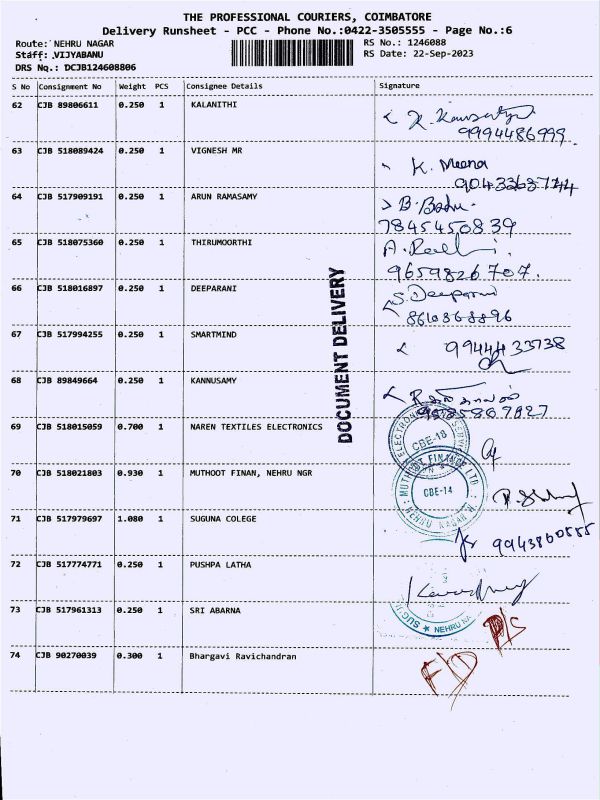 THE PROFESSIONAL COURIERS, COIMBATORE
Delivery Runsheet - PCC - Phone No.:0422-3505555 - Page No.:6
Route: NEHRU NAGAR
RS No.: 1246088
Staff: VIJYABANU
RS Date: 22-Sep-2023
DRS No.: DCJB124608806
S No Consignment No Weight PCS Consignee Details Signature
62 CJB 89806611 0.250 1 KALANITHI
9994486999
63 CJB 518089424 0.250 1 VIGNESH MR K. Meena
64 CJB 517909191 0.250 1 ARUN RAMASAMY B. Babu
7845450839
65 CJB 518075360 0.250 1 THIRUMOORTHI
9659826707.
66 CJB 518016897 0.250 1 DEEPARANI S. Deeparani
67 CJB 517994255 0.250 1 SMARTMIND 9944433738
68 CJB 89849664 0.250 1 KANNUSAMY
69 CJB 518015059 0.700 1 NAREN TEXTILES ELECTRONICS
CBE-18
70 CJB 518021803 0.930 1 MUTHOOT FINAN, NEHRU NGR
MUTHOOT FINANCE LTD.
CBE-14
NEHRU NAGAR
71 CJB 517979697 1.080 1 SUGUNA COLEGE
72 CJB 517774771 0.250 1 PUSHPA LATHA
73 CJB 517961313 0.250 1 SRI ABARNA D/S
74 CJB 90270039 0.300 1 Bhargavi Ravichandran F/D
DOCUMENT DELIVERY